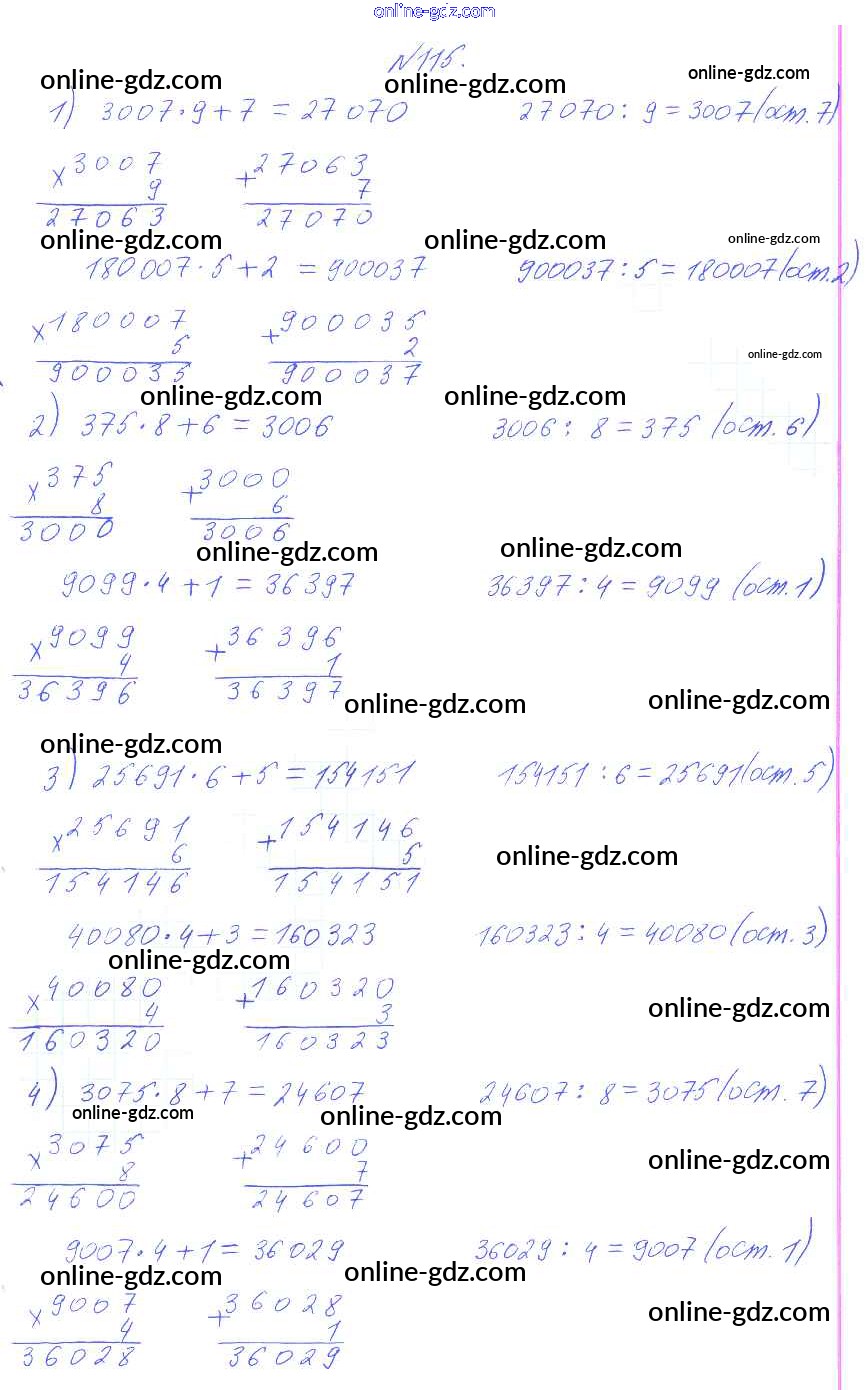 online-gdz.com
№115.
online-gdz.com online-gdz.com online-gdz.com
1) 3007·9+7 = 27070 27070 : 9 = 3007 (ост. 7)
×3007 +27063
9 7
27063 27070
online-gdz.com online-gdz.com online-gdz.com
180007·5+2 = 900037 900037 : 5 = 180007 (ост. 2)
×180007 +900035
5 2
online-gdz.com
900035 900037
online-gdz.com online-gdz.com
2) 375·8+6 = 3006 3006 : 8 = 375 (ост. 6)
×375 +3000
8 6
3000 3006
online-gdz.com online-gdz.com
9099·4+1 = 36397 36397 : 4 = 9099 (ост. 1)
×9099 +36396
4 1
36396 36397
online-gdz.com online-gdz.com
online-gdz.com
3) 25691·6+5 = 154151 154151 : 6 = 25691 (ост. 5)
×25691 +154146
6 5
online-gdz.com
154146 154151
40080·4+3 = 160323 160323 : 4 = 40080 (ост. 3)
online-gdz.com
×40080 +160320
4 3
online-gdz.com
160320 160323
4) 3075·8+7 = 24607 24607 : 8 = 3075 (ост. 7)
online-gdz.com online-gdz.com
×3075 +24600
8 7
online-gdz.com
24600 24607
9007·4+1 = 36029 36029 : 4 = 9007 (ост. 1)
online-gdz.com online-gdz.com
×9007 +36028
4 1
online-gdz.com
36028 36029